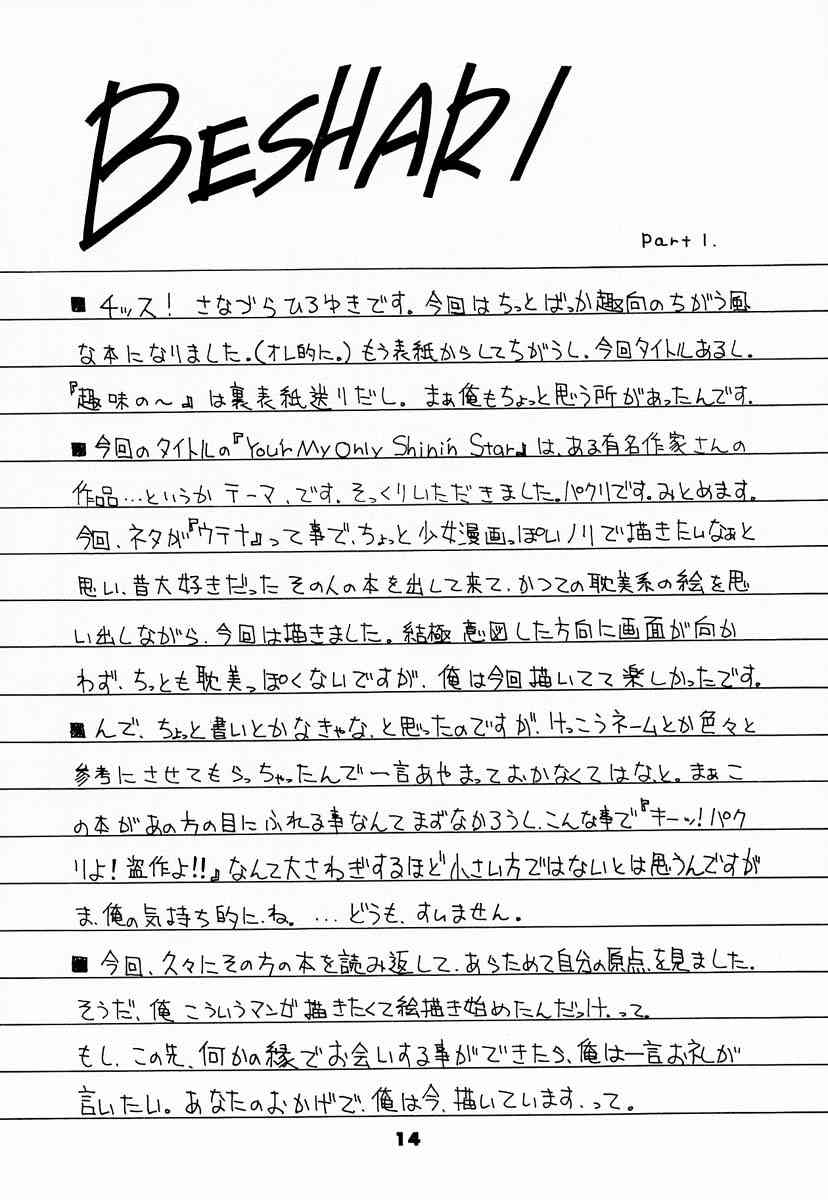 BESHARI
Part 1.
■ チッス！ さなづらひろゆきです。今回はちっとばっか趣向のちがう風
な本になりました。（オレ的に。）もう表紙からしてちがうし、今回タイトルあるし。
『趣味の～』は裏表紙送りだし。まぁ俺もちょっと思う所があったんです。
■ 今回のタイトルの『Your My Only Shinin' Star』は、ある有名作家さんの
作品…というか テーマ、です。そっくりいただきました。パクリです。みとめます。
今回、ネタが『ウテナ』って事で、ちょっと少女漫画っぽいノリで描きたいなぁと
思い、昔大好きだった その人の本を出して来て、かつての耽美系の絵を思
い出しながら、今回は描きました。結極 意図した方向に画面が向か
わず、ちっとも耽美っぽくないですが、俺は今回描いてて楽しかったです。
■ んで、ちょっと書いとかなきゃな、と思ったのですが、けっこうネームとか色々と
参考にさせてもらっちゃったんで一言あやまっておかなくてはなと。まぁこ
の本があの方の目にふれる事なんてまずなかろうし、こんな事で『キーッ！パク
リよ！盗作よ！！』なんて大さわぎするほど小さい方ではないとは思うんですが
ま、俺の気持ち的に、ね。…どうも、すいません。
■ 今回、久々にその方の本を読み返して、あらためて自分の原点を見ました。
そうだ、俺 こういうマンガ描きたくて絵描き始めたんだっけ、って。
もし、この先、何かの縁でお会いする事ができたら、俺は一言お礼が
言いたい。あなたのおかげで、俺は今、描いています、って。
14